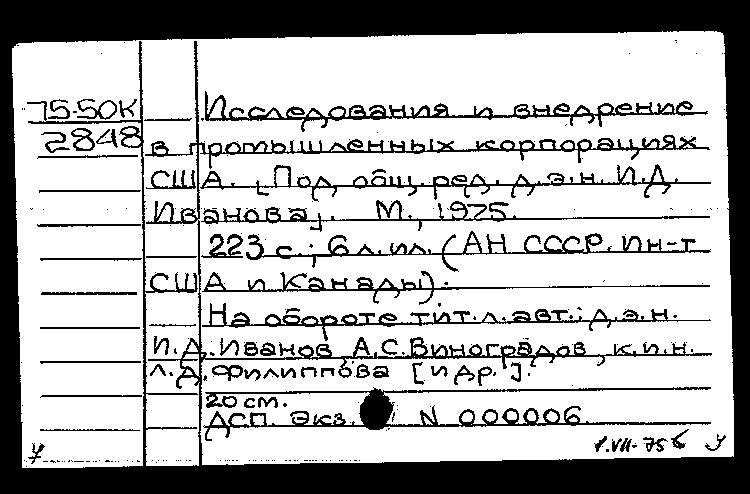 75-50К Исследования и внедрение
2848 в промышленных корпорациях
США. [Под общ. ред. д.э.н. И.Д.
Иванова]. М., 1975.
223 с.; 6 л. ил. (АН СССР. Ин-т
США и Канады).
На обороте тит. л. авт.: д.э.н.
И.Д. Иванов, А.С. Виноградов, к.и.н.
Л.Д. Филиппова [и др.].
20 см.
ДСП. Экз. N 000006.
1.VII-75